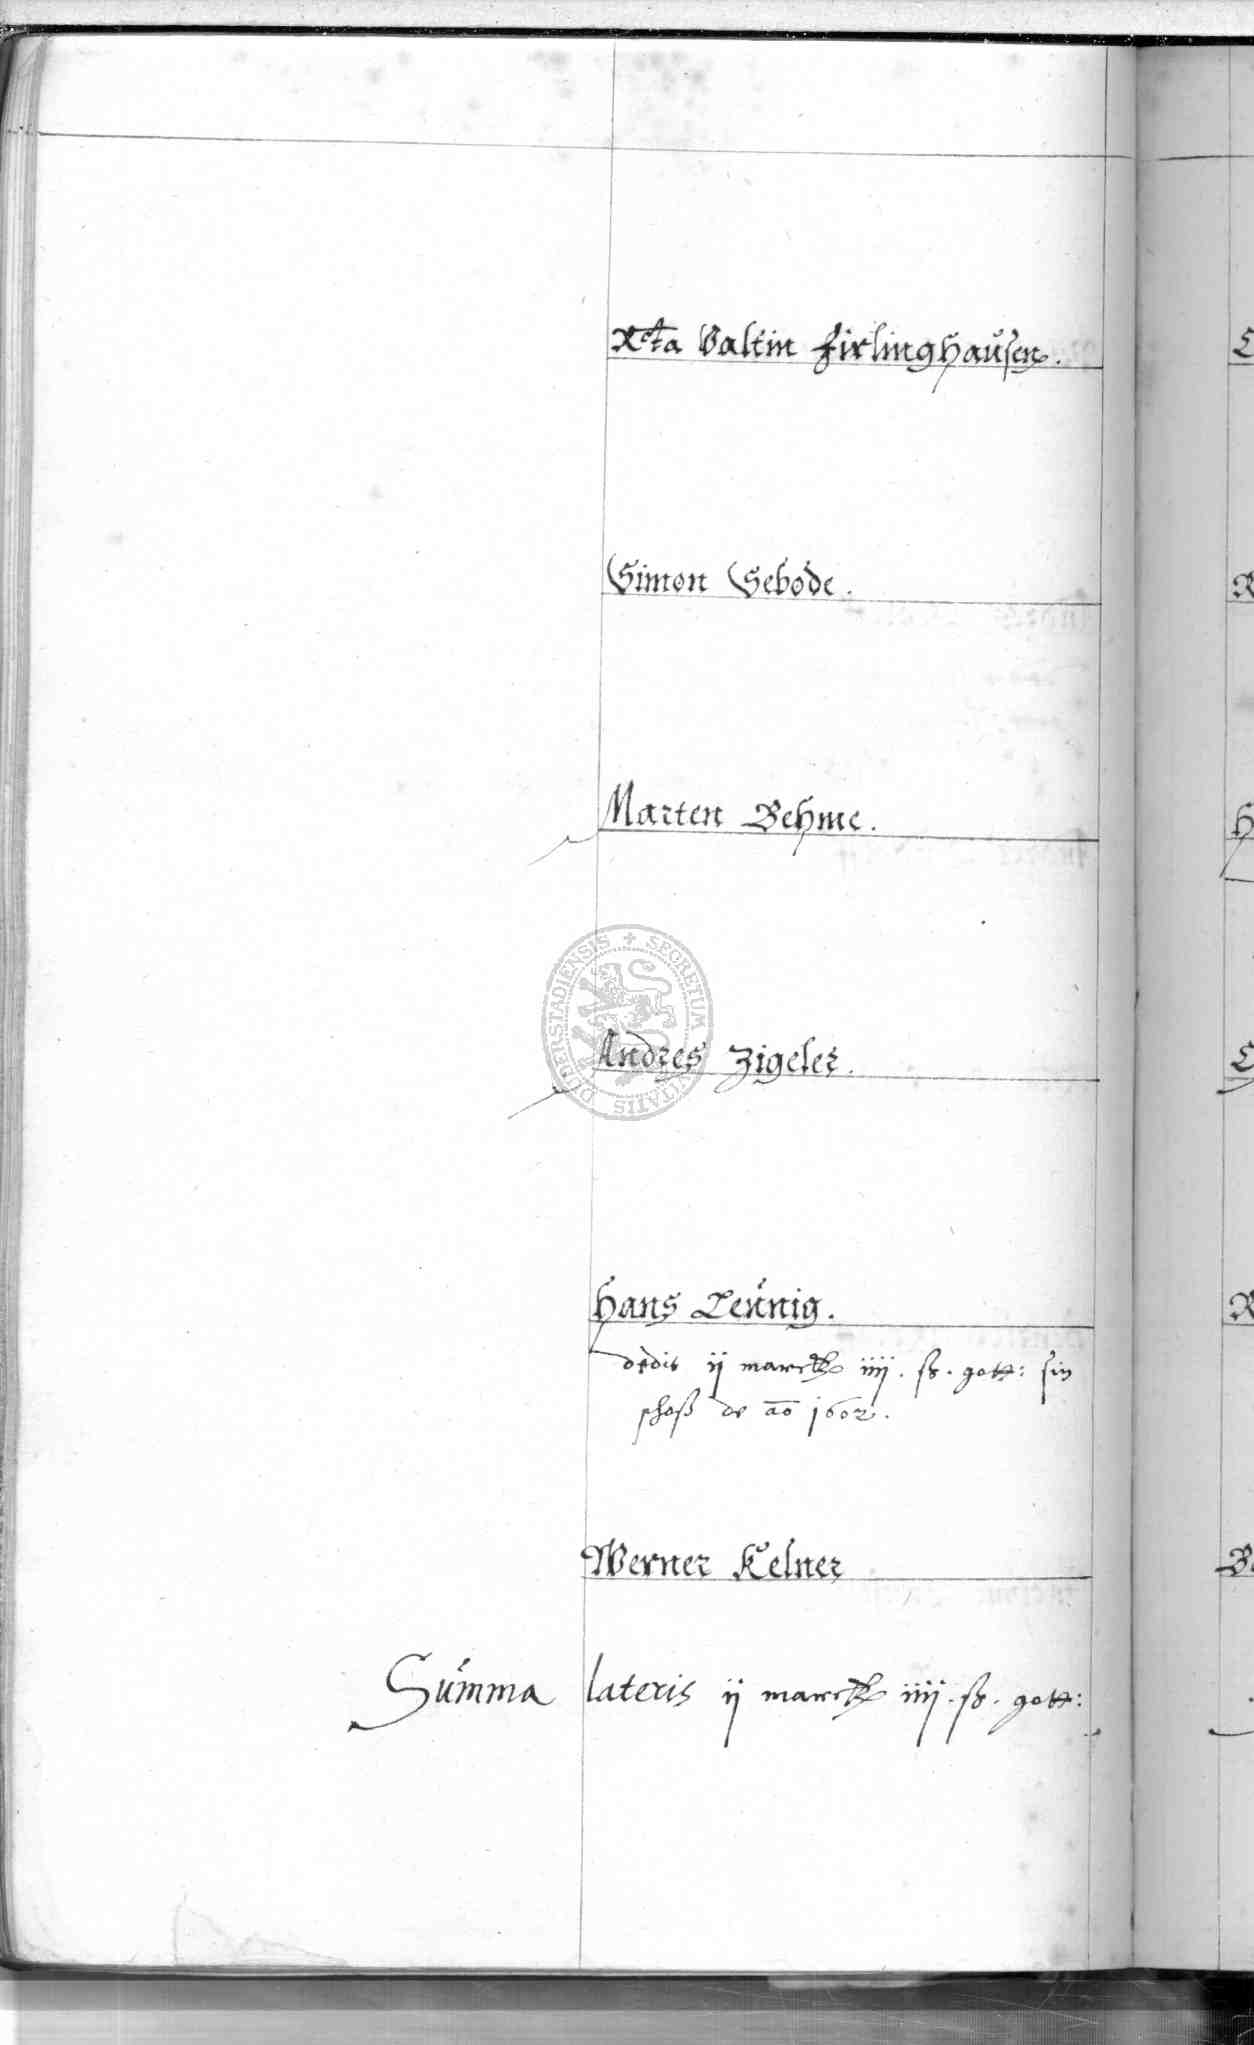 Rcta Valtin Firlinghausen.
Simon Sebode.
Marten Behme.
SECRETUM CIVITATIS DUDERSTADIENSIS
Andres Zigeler.
Hans Leünig.
dedit ij marck iiij. ß. gott: sin
schoß de ao 1602.
Werner Kelner
Sum̃ma lateris ij marck iiij. ß. gott: